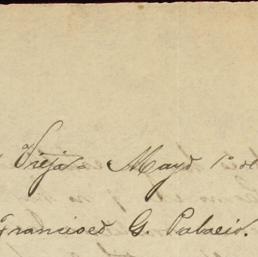 Vieja Mayo 1º de
Francisco G. Palacio.